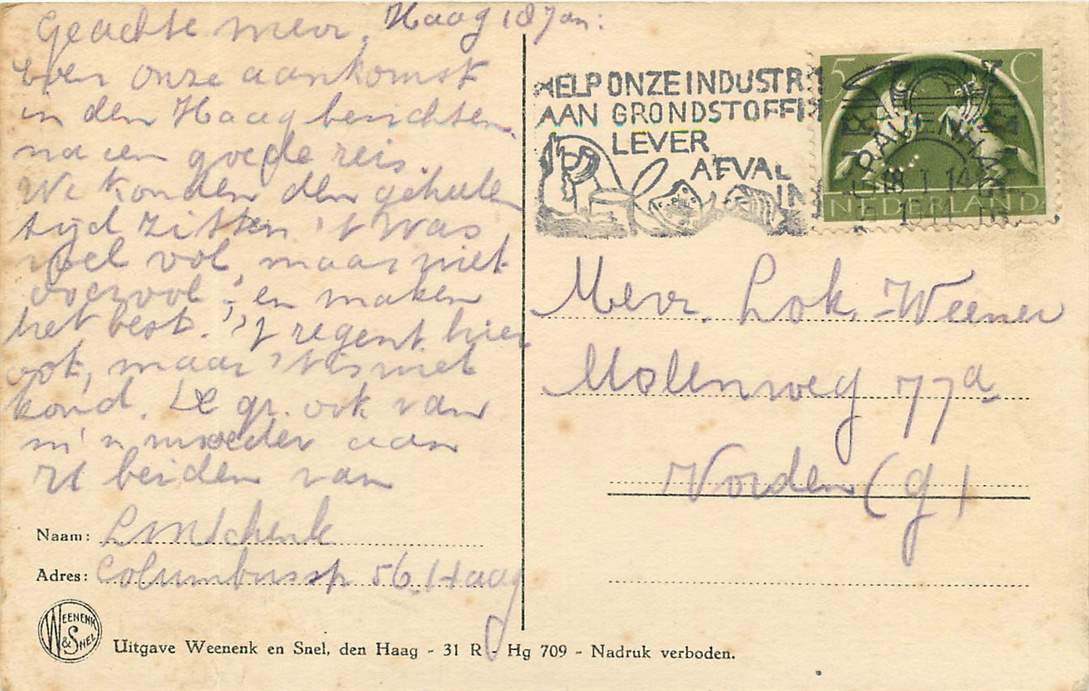 Geachte mevr, Haag 18 Jan:
over onze aankomst
in den Haag berichten.
na een goede reis.
We konden den geheelen
tijd zitten 't Was
wel vol, maar niet
overvol; en maken
het best. 't regent hier
ook, maar 't is niet
koud. De gr. ook van
m'n moeder aan
U beiden van
Naam: L M Schenk
Adres: Columbusstr 56 Haag
WEENENK & SNEL
Uitgave Weenenk en Snel, den Haag - 31 R - Hg 709 - Nadruk verboden.
HELP ONZE INDUSTRIE
AAN GRONDSTOFFEN
LEVER
AFVAL
IN
5 C
'S GRAVENHAGE
18 I 14
1944
NEDERLAND
Mevr. Lok-Weener
Molenweg 77a
Vorden (g)